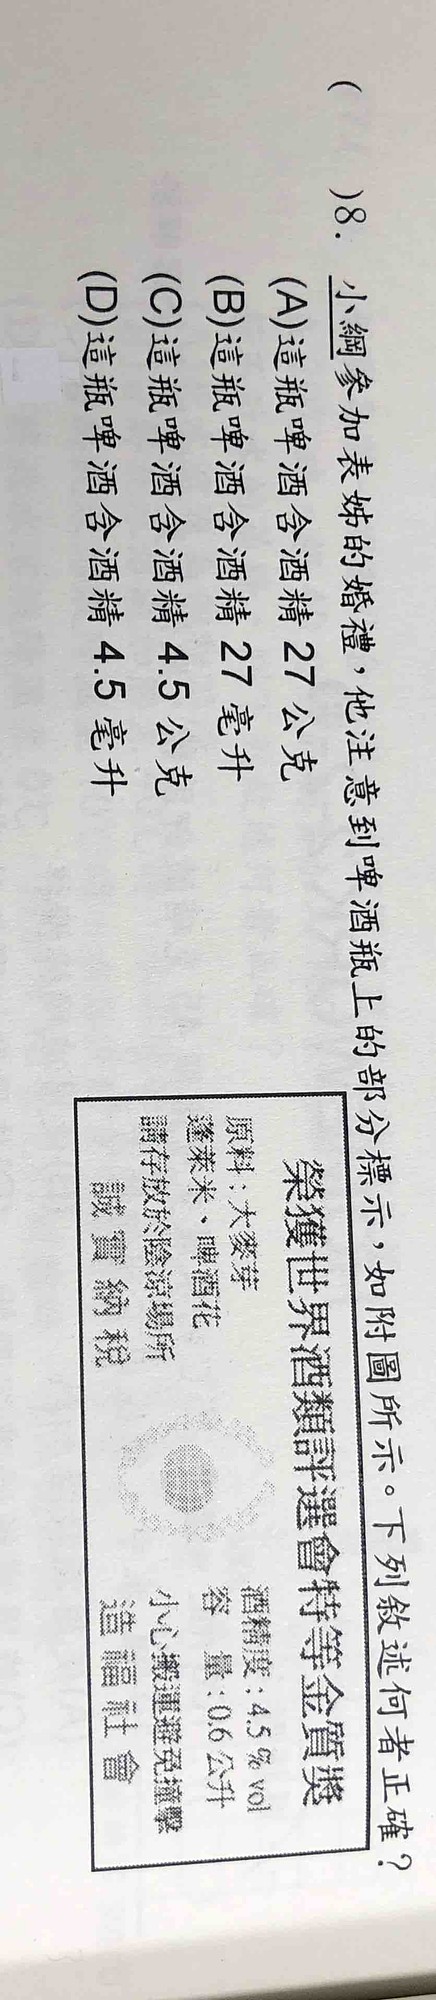 (　　)8. 小綱參加表姊的婚禮，他注意到啤酒瓶上的部分標示，如附圖所示。下列敘述何者正確？
(A)這瓶啤酒含酒精 27 公克
(B)這瓶啤酒含酒精 27 毫升
(C)這瓶啤酒含酒精 4.5 公克
(D)這瓶啤酒含酒精 4.5 毫升
榮獲世界酒類評選會特等金質獎
原料：大麥芽
蓬萊米、啤酒花
請存放於陰涼場所
誠實納稅
酒精度：4.5 % vol
容　量：0.6 公升
小心搬運避免撞擊
造福社會